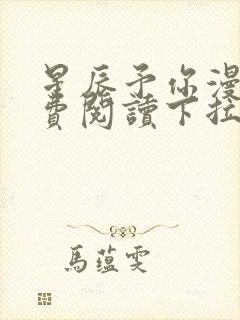 星辰予你漫
費閱讀下拉
馬蘊雯